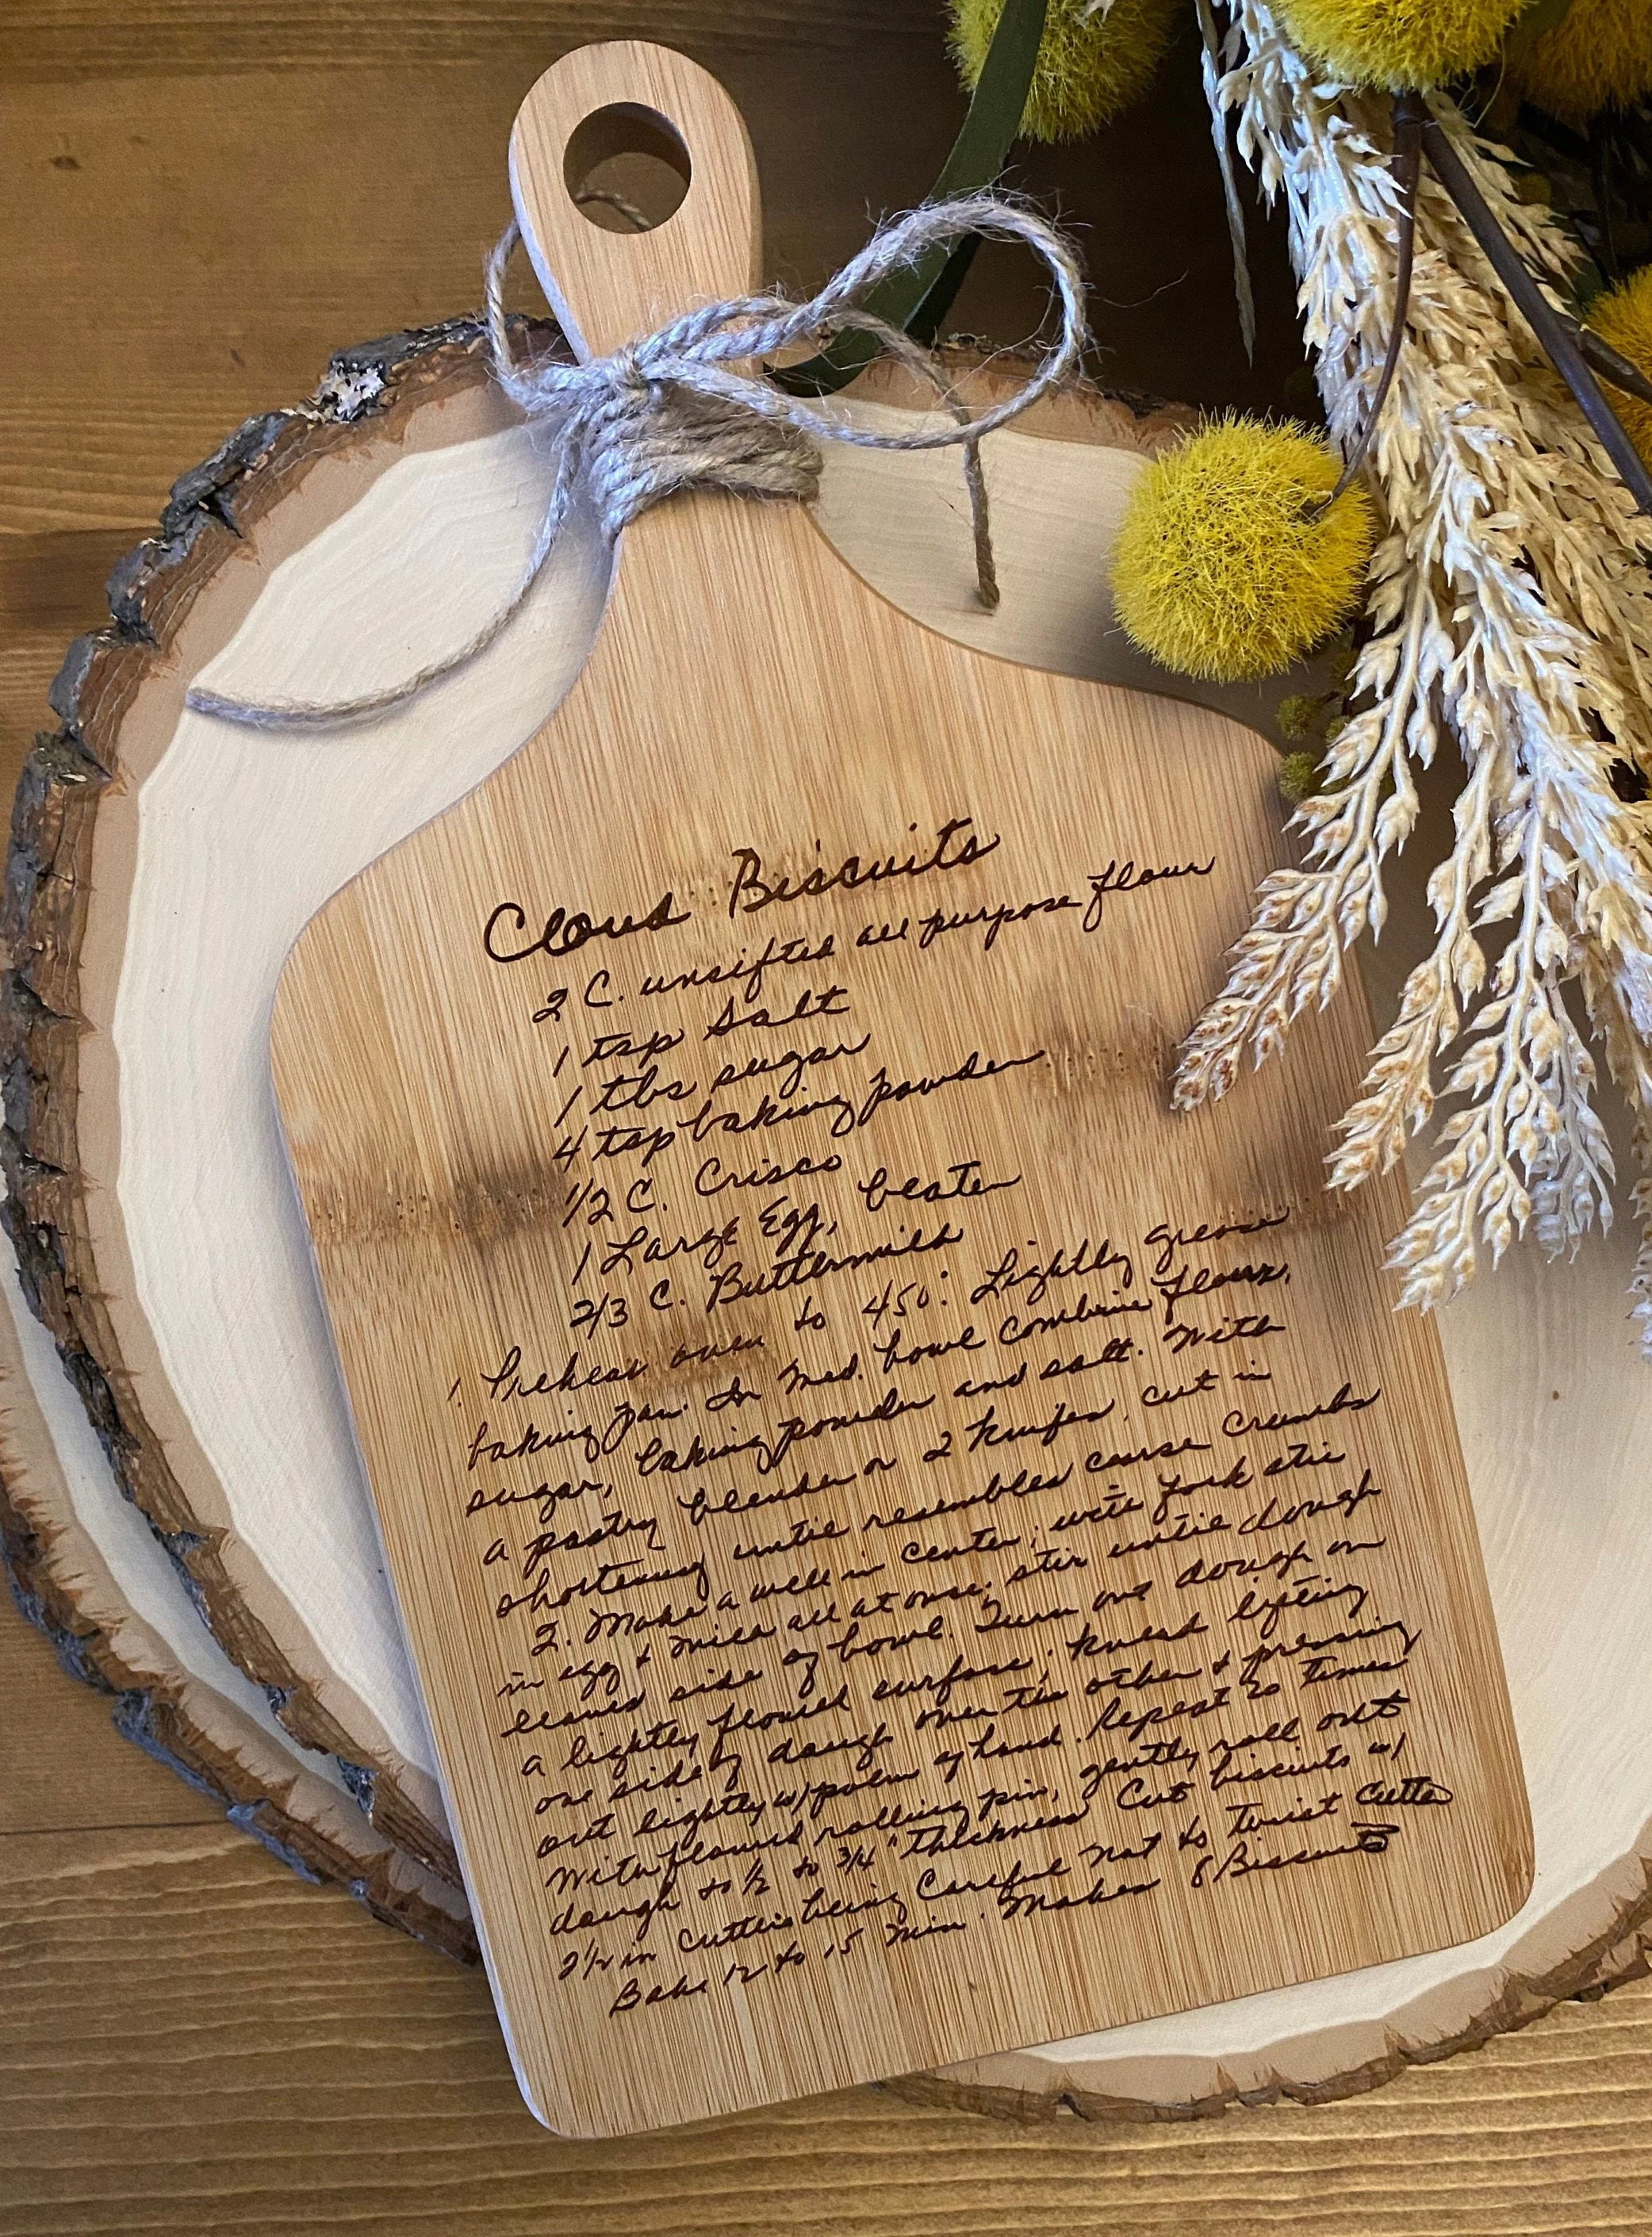 Cloud Biscuits
2 C. unsifted all purpose flour
1 tsp Salt
1 tbs sugar
4 tsp baking powder
1/2 C. Crisco
1 Large Egg, beaten
2/3 C. Buttermilk
1 Preheat oven to 450°. Lightly grease
baking pan. In med. bowl combine flour,
sugar, baking powder and salt. With
a pastry blender or 2 knifes, cut in
shortening until resembles coarse crumbs
2. Make a well in center, with fork stir
in egg & milk all at once; stir until dough
leaves side of bowl. Turn out dough on
a lightly floured surface; knead lifting
one side of dough over the other & pressing
out lightly w/ palm of hand. Repeat 20 times
With floured rolling pin, gently roll out
dough to 1/2 to 3/4" thickness Cut biscuits w/
2 1/2 in cutter being Careful not to twist cutter
Bake 12 to 15 min. Makes 8 Biscuits